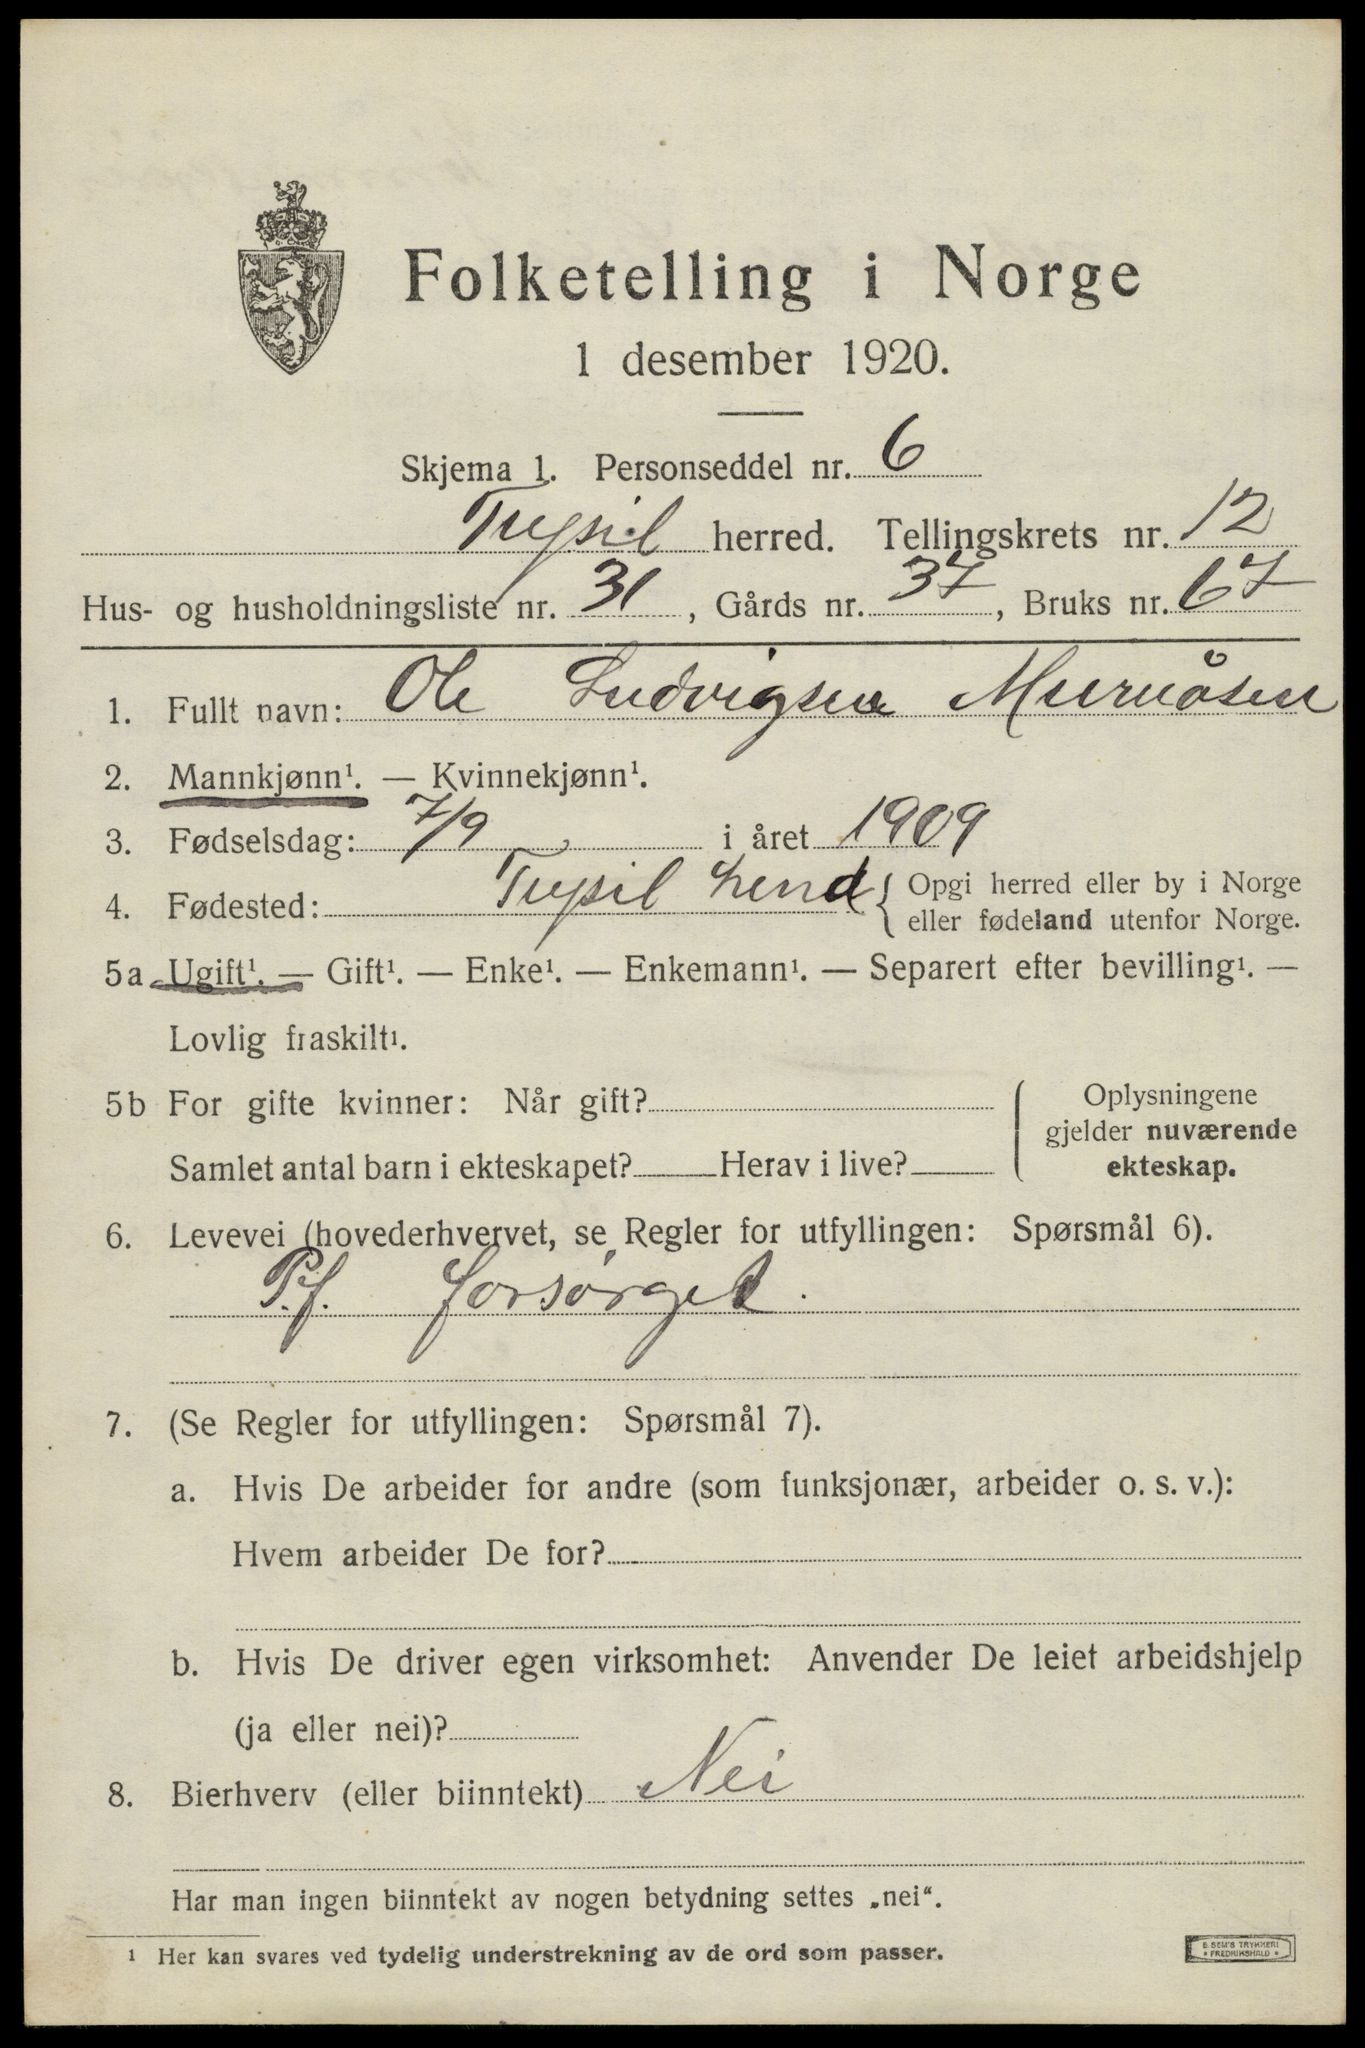 Folketelling i Norge
1 desember 1920.
Skjema 1. Personseddel nr. 6
Trysil herred. Tellingskrets nr. 12
Hus- og husholdningsliste nr. 31, Gårds nr. 37, Bruks nr. 67
1. Fullt navn: Ole Ludvigsen
2. Mannkjønn¹. — Kvinnekjønn¹.
3. Fødselsdag: 7/9 i året 1909
4. Fødested: Trysil { Opgi herred eller by i Norge
eller fødeland utenfor Norge.
5a Ugift¹. — Gift¹. — Enke¹. — Enkemann¹. — Separert efter bevilling¹. —
Lovlig fraskilt¹.
5b For gifte kvinner: Når gift?
Samlet antal barn i ekteskapet? Herav i live?
Oplysningene
gjelder nuværende
ekteskap.
6. Levevei (hovederhvervet, se Regler for utfyllingen: Spørsmål 6).
P.f. forsörget.
7. (Se Regler for utfyllingen: Spørsmål 7).
a. Hvis De arbeider for andre (som funksjonær, arbeider o. s. v.):
Hvem arbeider De for?
b. Hvis De driver egen virksomhet: Anvender De leiet arbeidshjelp
(ja eller nei)?
8. Bierhverv (eller biinntekt) Nei
Har man ingen biinntekt av nogen betydning settes „nei“.
¹ Her kan svares ved tydelig understrekning av de ord som passer.
E SEM'S TRYKKERI
• FREDRIKSHALD •